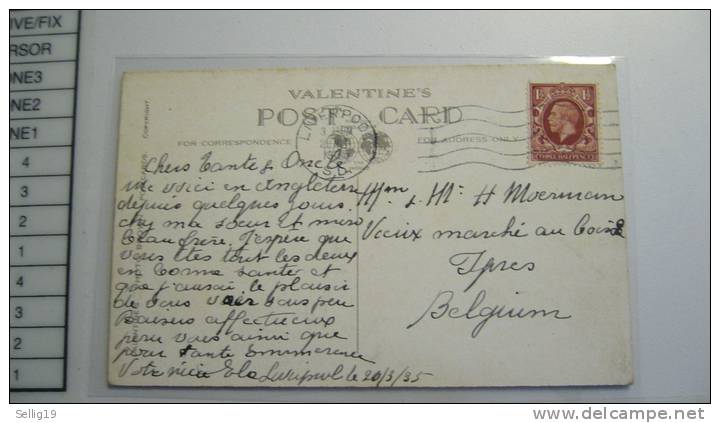 IVE/FIX
RSOR
ONE3
NE2
NE1
4
3
2
1
4
3
2
1
VALENTINE'S
POST CARD
FOR CORRESPONDENCE
FOR ADDRESS ONLY
COPYRIGHT
LIVERPOOL
THREE HALFPENCE
Chers Tante & Oncle
me voici en Angleterre
depuis quelques jours
chez ma soeur et mon
beau frère. J'espère que
vous êtes tout les deux
en bonne santé et
que j'aurai le plaisir
de vous voir sous peu
Baisers affectueux
pour vous ainsi que
pour tante Emmerence
Votre nièce Ela Liverpool le 20/3/35
Mm & Mr H Moerman
Vieux marché au bois 2
Ypres
Belgium
Sellig19
www.delcampe.net